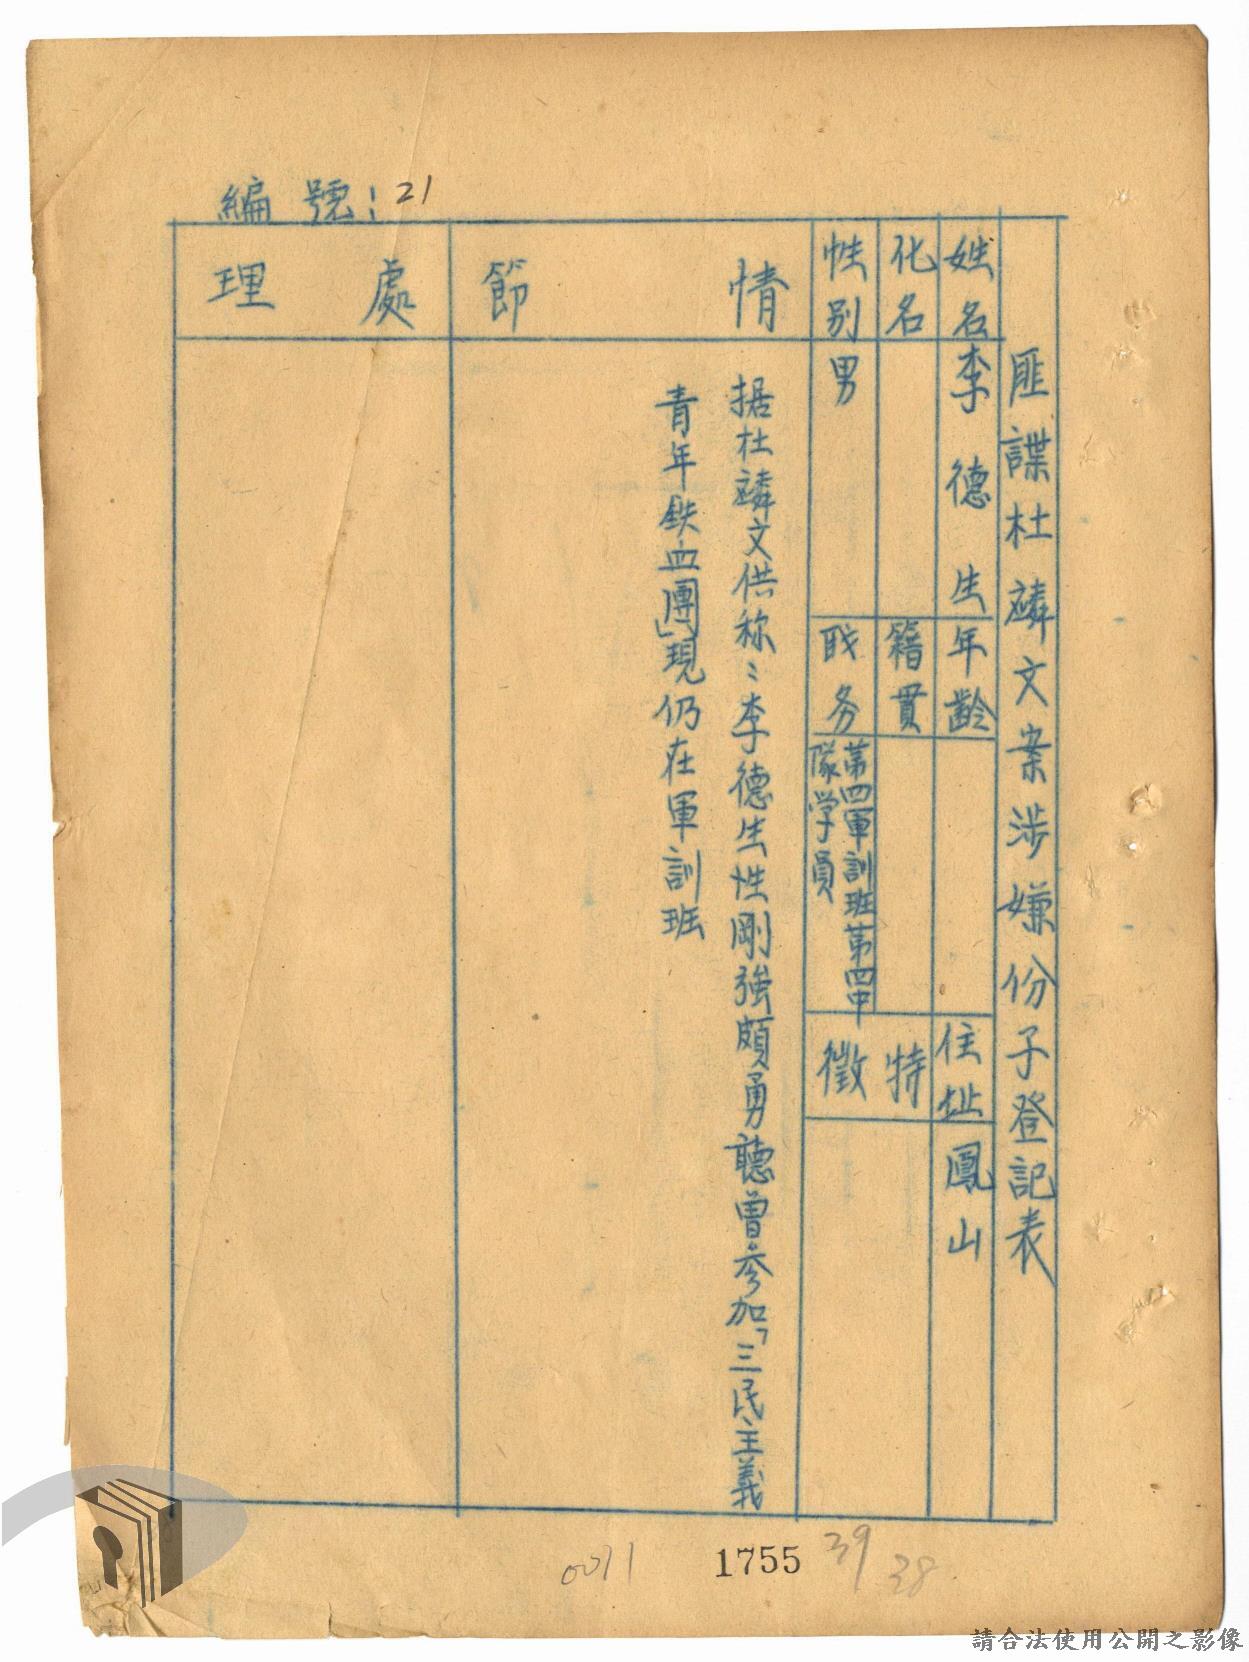 編號：21
匪諜杜麟文案涉嫌份子登記表
姓名
李德生
年齡
住址
鳳山
化名
籍貫
特徵
性別
男
职务
第四軍訓班第四中
隊学員
情節
据杜麟文供称：李德生性剛強頗勇聽曾參加「三民主義
青年鉄血團」現仍在軍訓班
處理
0011
1755
39
38
請合法使用公開之影像